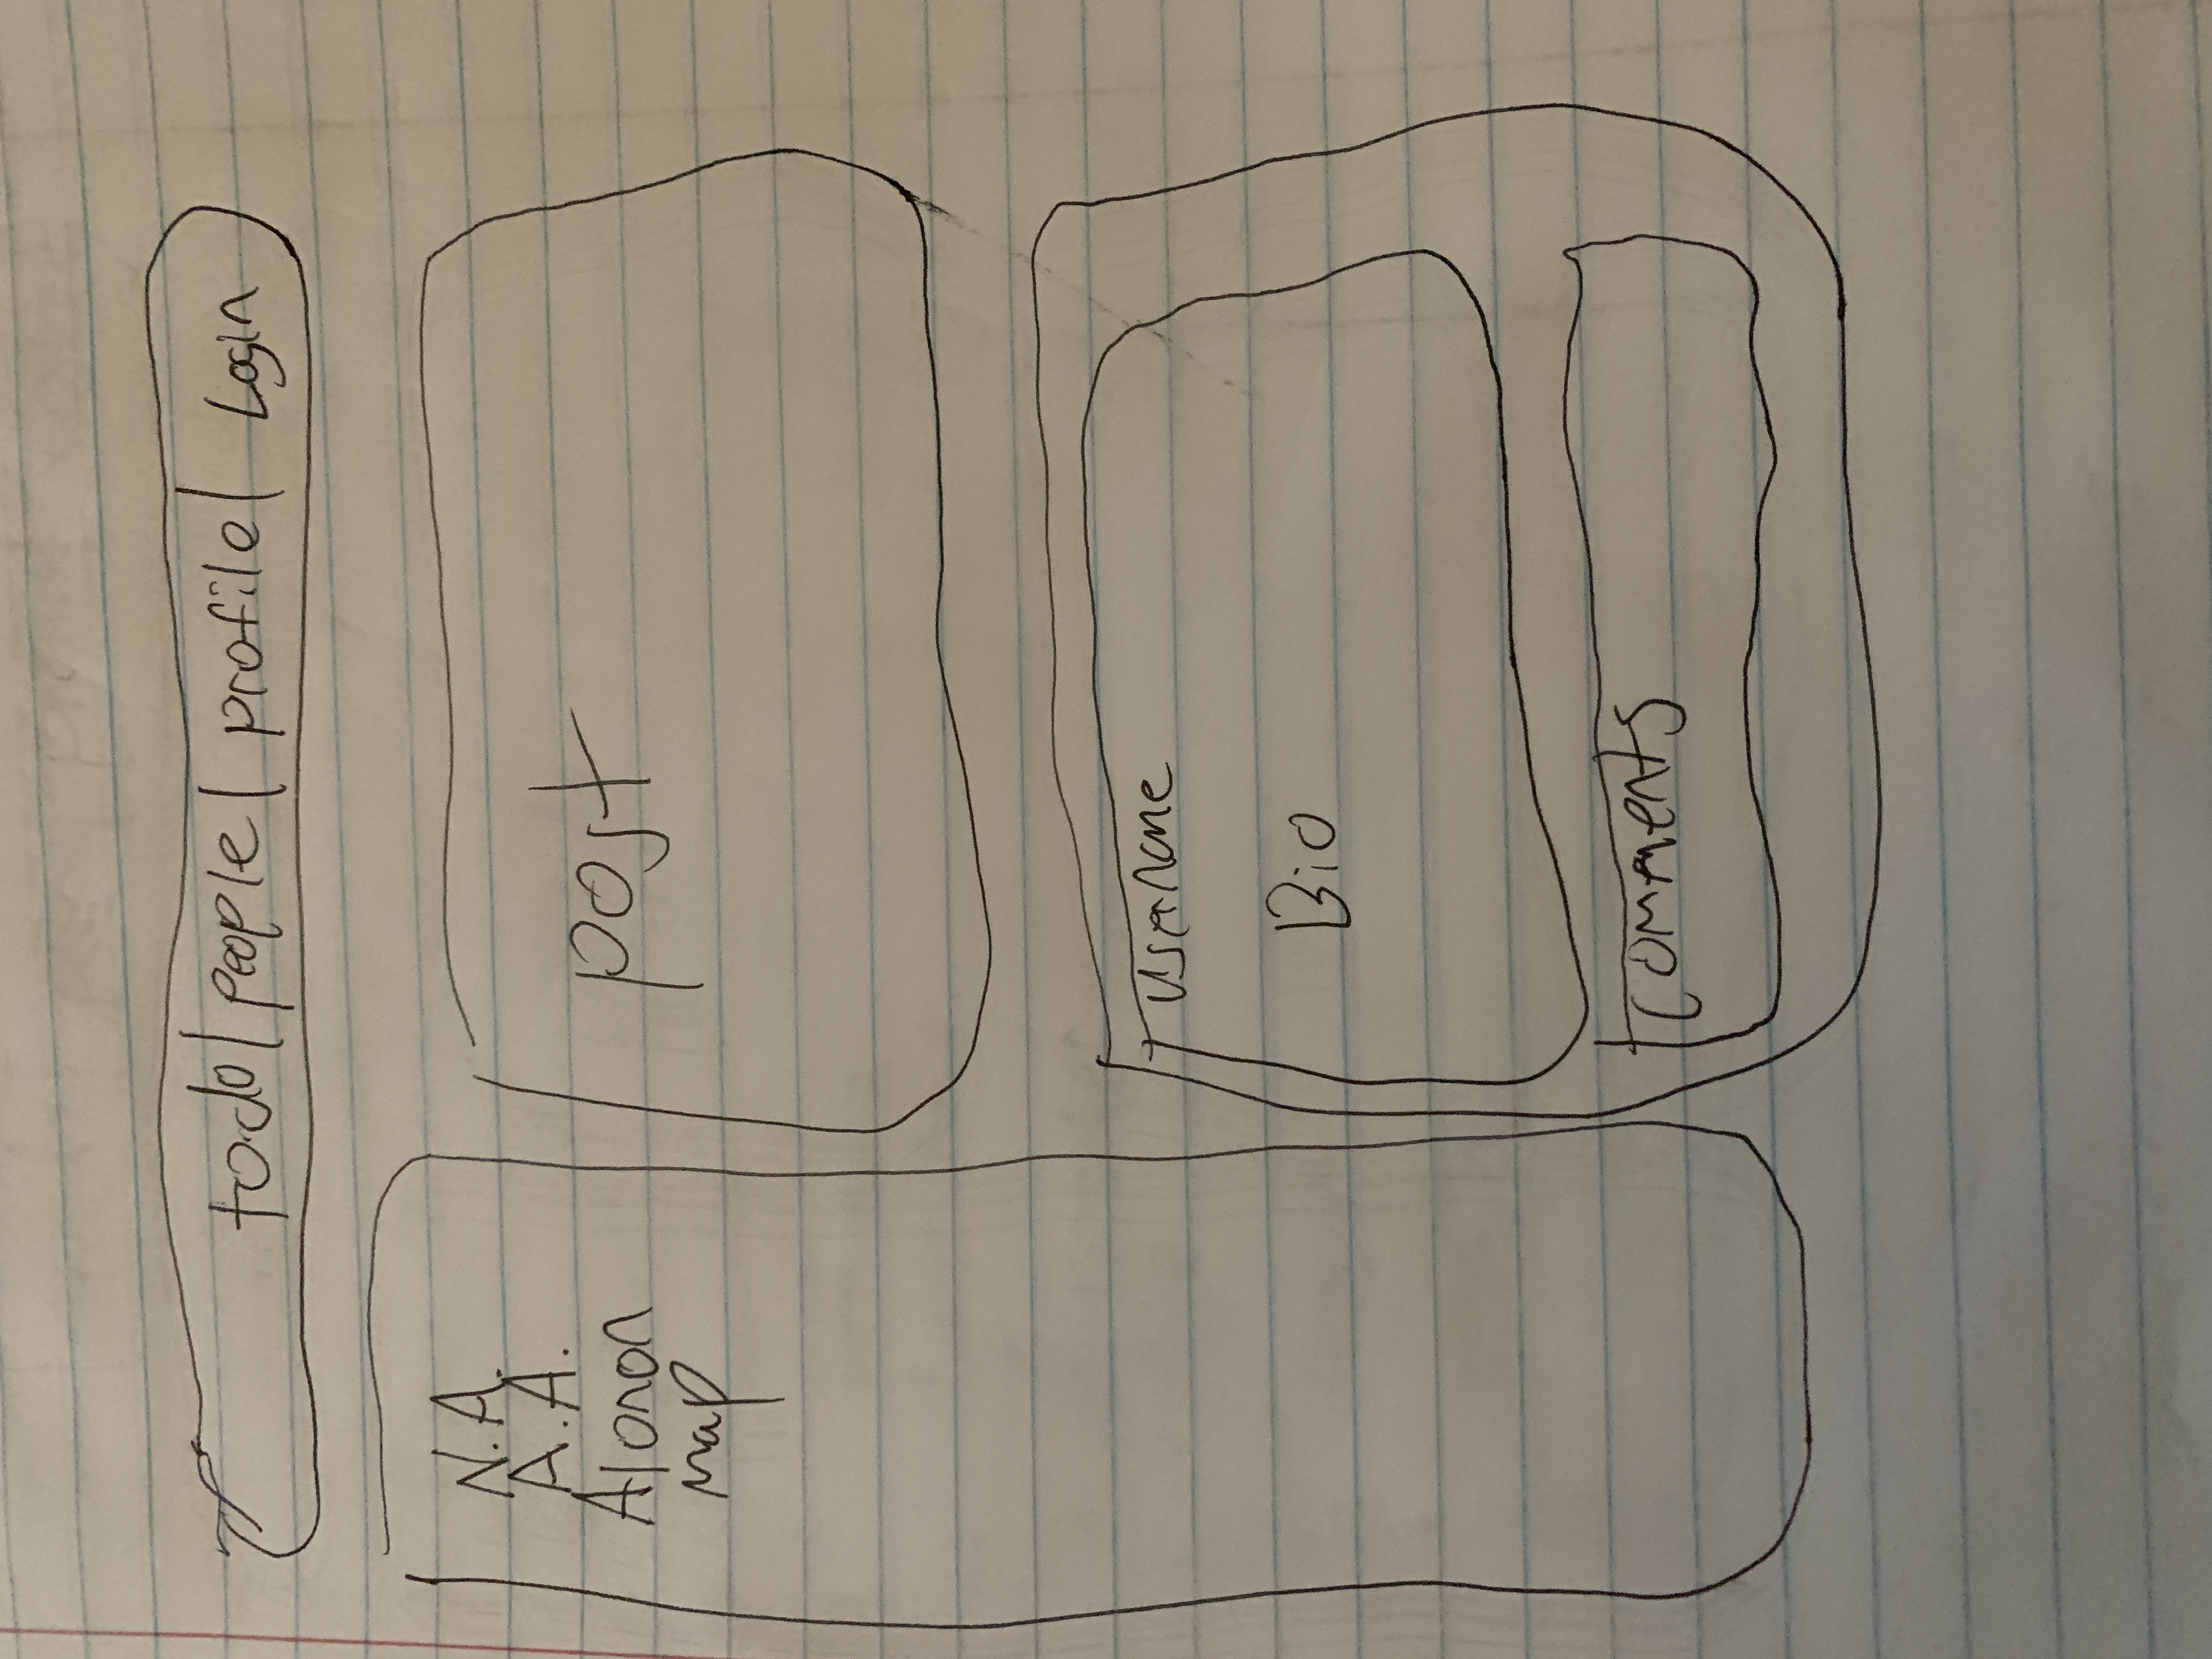 todo | people | profile | Login
N.A.
A.A.
Alonon
map
post
username
Bio
comments